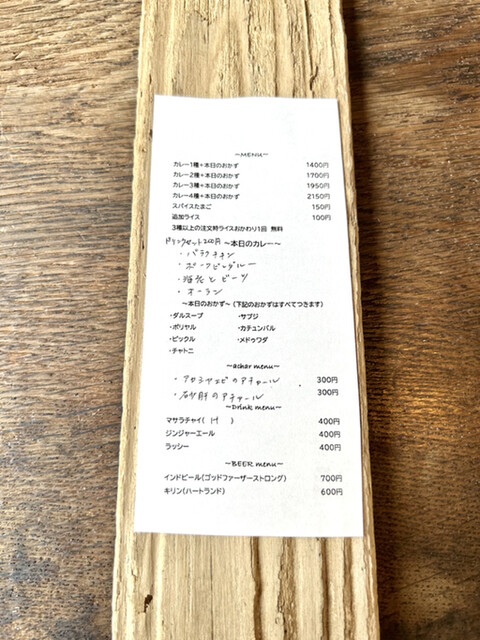 ~MENU~
カレー1種+本日のおかず 1400円
カレー2種+本日のおかず 1700円
カレー3種+本日のおかず 1950円
カレー4種+本日のおかず 2150円
スパイスたまご 150円
追加ライス 100円
3種以上の注文時ライスおかわり1回 無料
ドリンクセット200円 ~本日のカレー~
・バラクチキン
・ポークビンダルー
・海老とビーツ
・オーラン
~本日のおかず~(下記のおかずはすべてつきます)
・ダルスープ ・サブジ
・ポリヤル ・カチュンバル
・ピックル ・メドゥワダ
・チャトニ
~achar menu~
・アカシャエビのアチャール 300円
・砂肝のアチャール 300円
~Drink menu~
マサラチャイ( ) 400円
ジンジャーエール 400円
ラッシー 400円
~BEER menu~
インドビール(ゴッドファーザーストロング) 700円
キリン(ハートランド) 600円